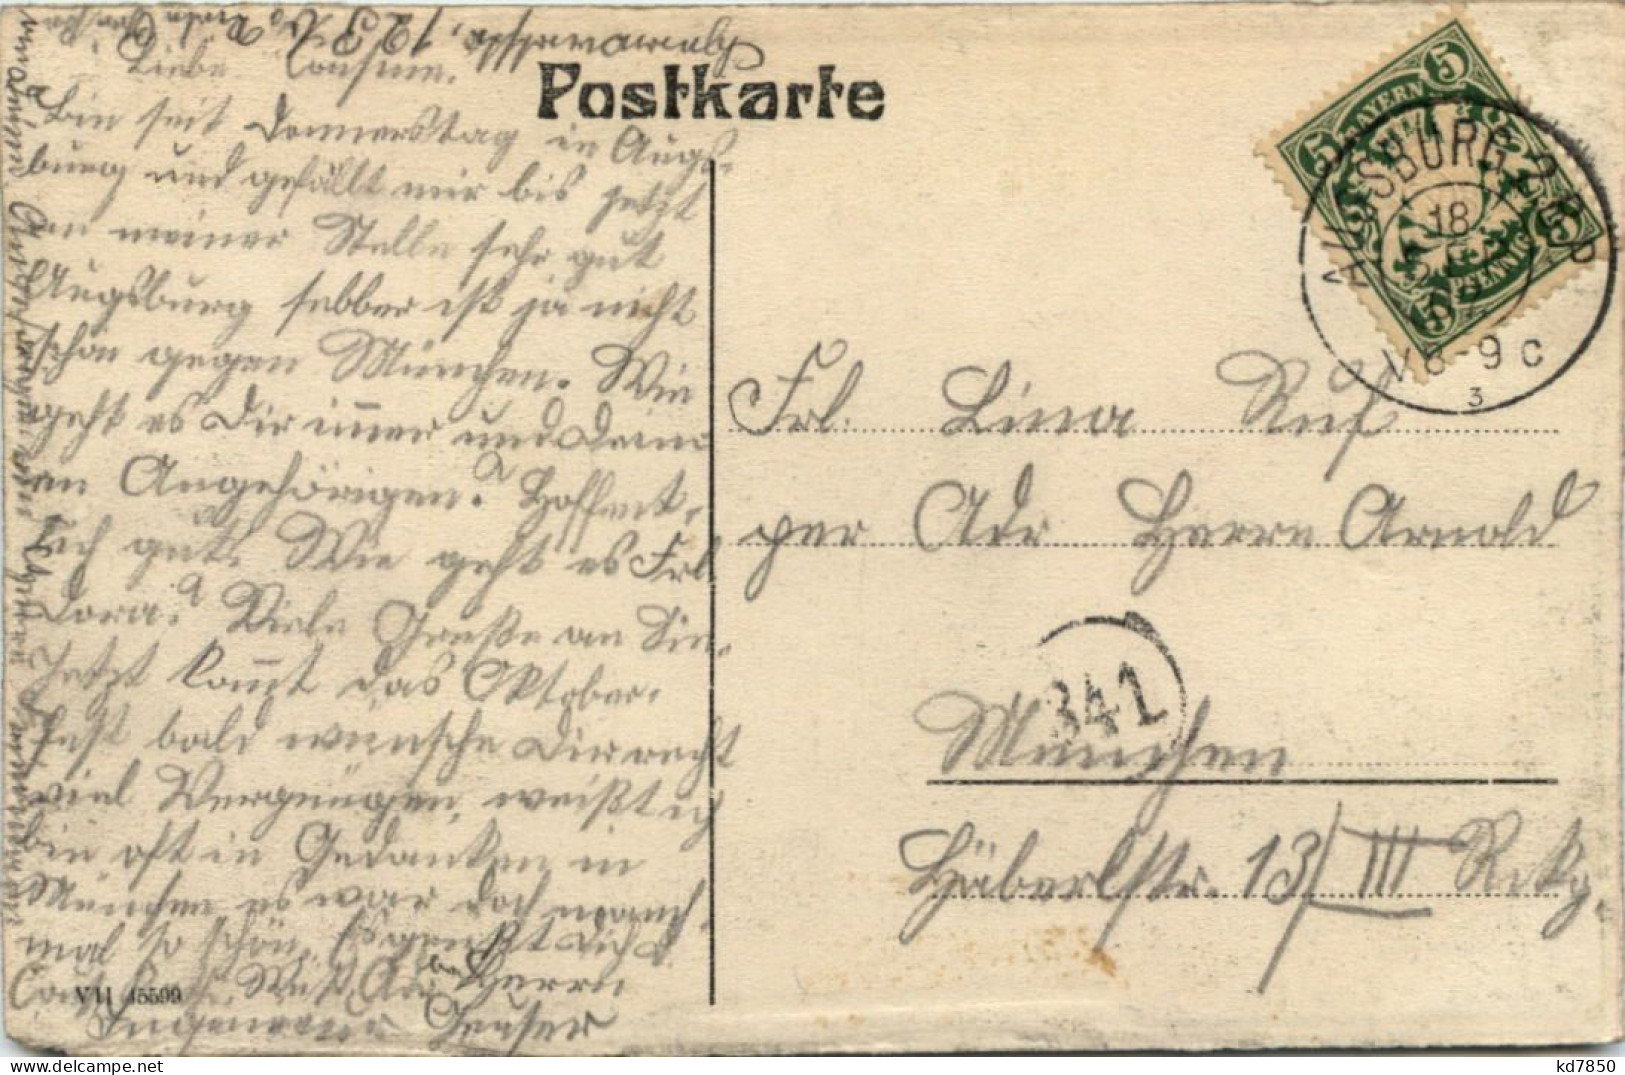 Postkarte
Liebe
Bin seit Donnerstag in Augs-
burg und gefällt mir bis jetzt
an meiner Stelle sehr gut
Augsburg selber ist ja nicht
schön gegen München. Wie
geht es Dir immer und Dein
en Angehörigen? Hoffent-
lich gut. Wie geht es Frl
Dora? Viele Grüße an Sie.
Jetzt kommt das Oktober-
fest bald wünsche Dir recht
viel Vergnügen, weißt ich
bin oft in Gedanken in
München es war doch manch
mal so schön. Es grüßt Dich d.
Herrn
Ingenieur
V 11 15599
BAYERN
5 5 5 5
PFENNIG
AUGSBURG 2
18
V 8-9 c
3
Frl. Lina Ruf
per Adr Herrn Arnold
341
München
Häberlstr. 13/III Rckg.
kd7850